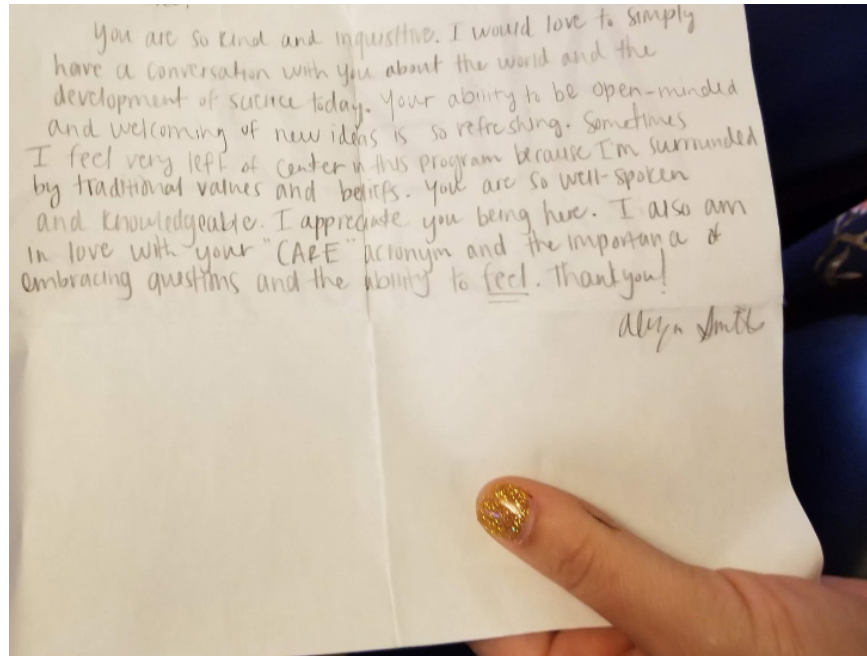 You are so kind and inquisitive. I would love to simply
have a conversation with you about the world and the
development of science today. Your ability to be open-minded
and welcoming of new ideas is so refreshing. Sometimes
I feel very left of center in this program because I'm surrounded
by traditional values and beliefs. You are so well-spoken
and knowledgeable. I appreciate you being here. I also am
in love with your "CARE" acronym and the importance of
embracing questions and the ability to feel. Thank you!
Smith